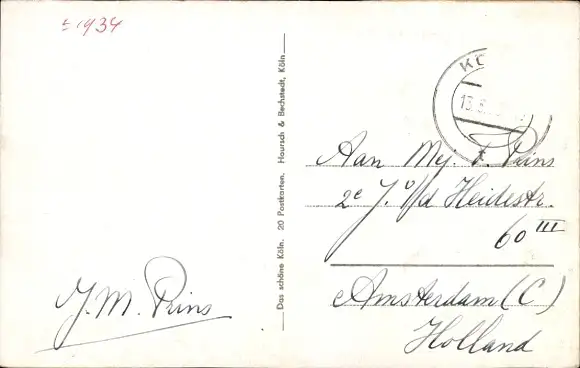 ± 1934
Das schöne Köln. 20 Postkarten. Hoursch & Bechstedt, Köln
KÖ
13.8.
Aan Mej. F. Prins
2e J. v/d Heidestr.
60 III
Amsterdam (C)
Holland
J. M. Prins